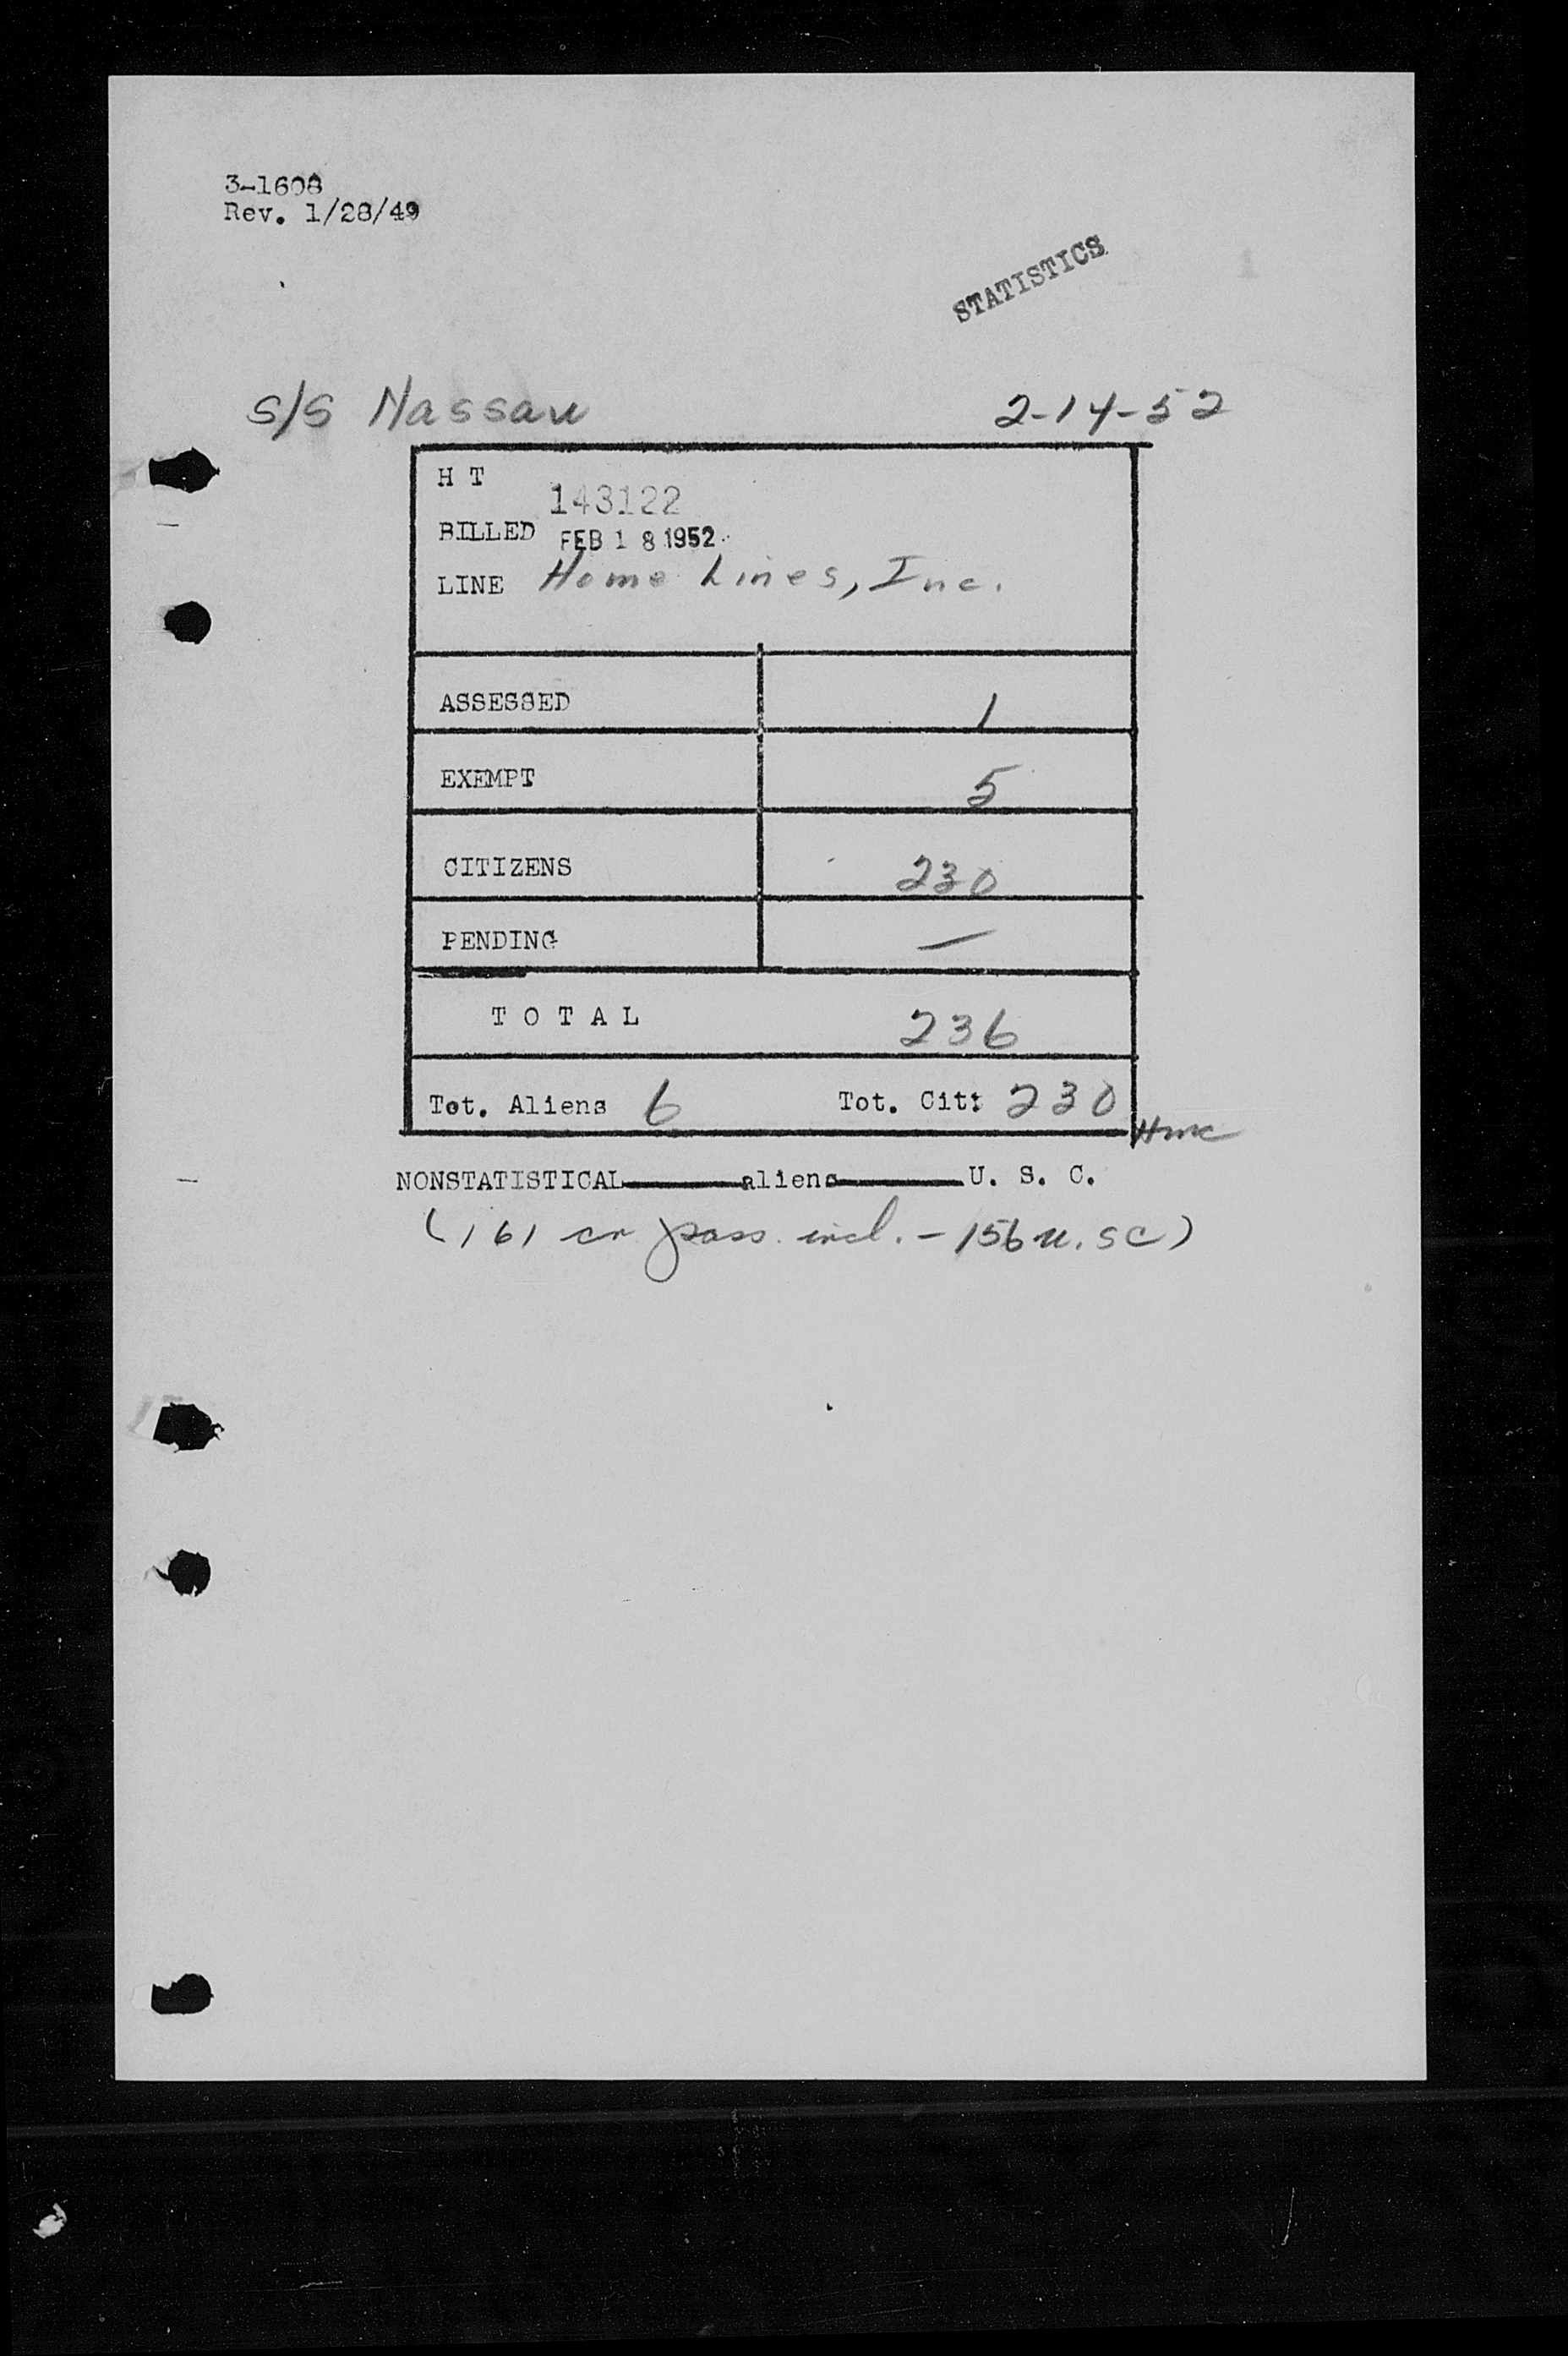 3-1608
Rev. 1/28/49
STATISTICS
S/S Nassau 2-14-52
H T
143122
BILLED FEB 18 1952
LINE Home Lines, Inc.
ASSESSED 1
EXEMPT 5
CITIZENS 230
PENDING —
T O T A L 236
Tot. Aliens 6 Tot. Cit: 230
Hmc
NONSTATISTICAL______aliens______U. S. C.
(161 cr pass. incl. - 156 U. SC)